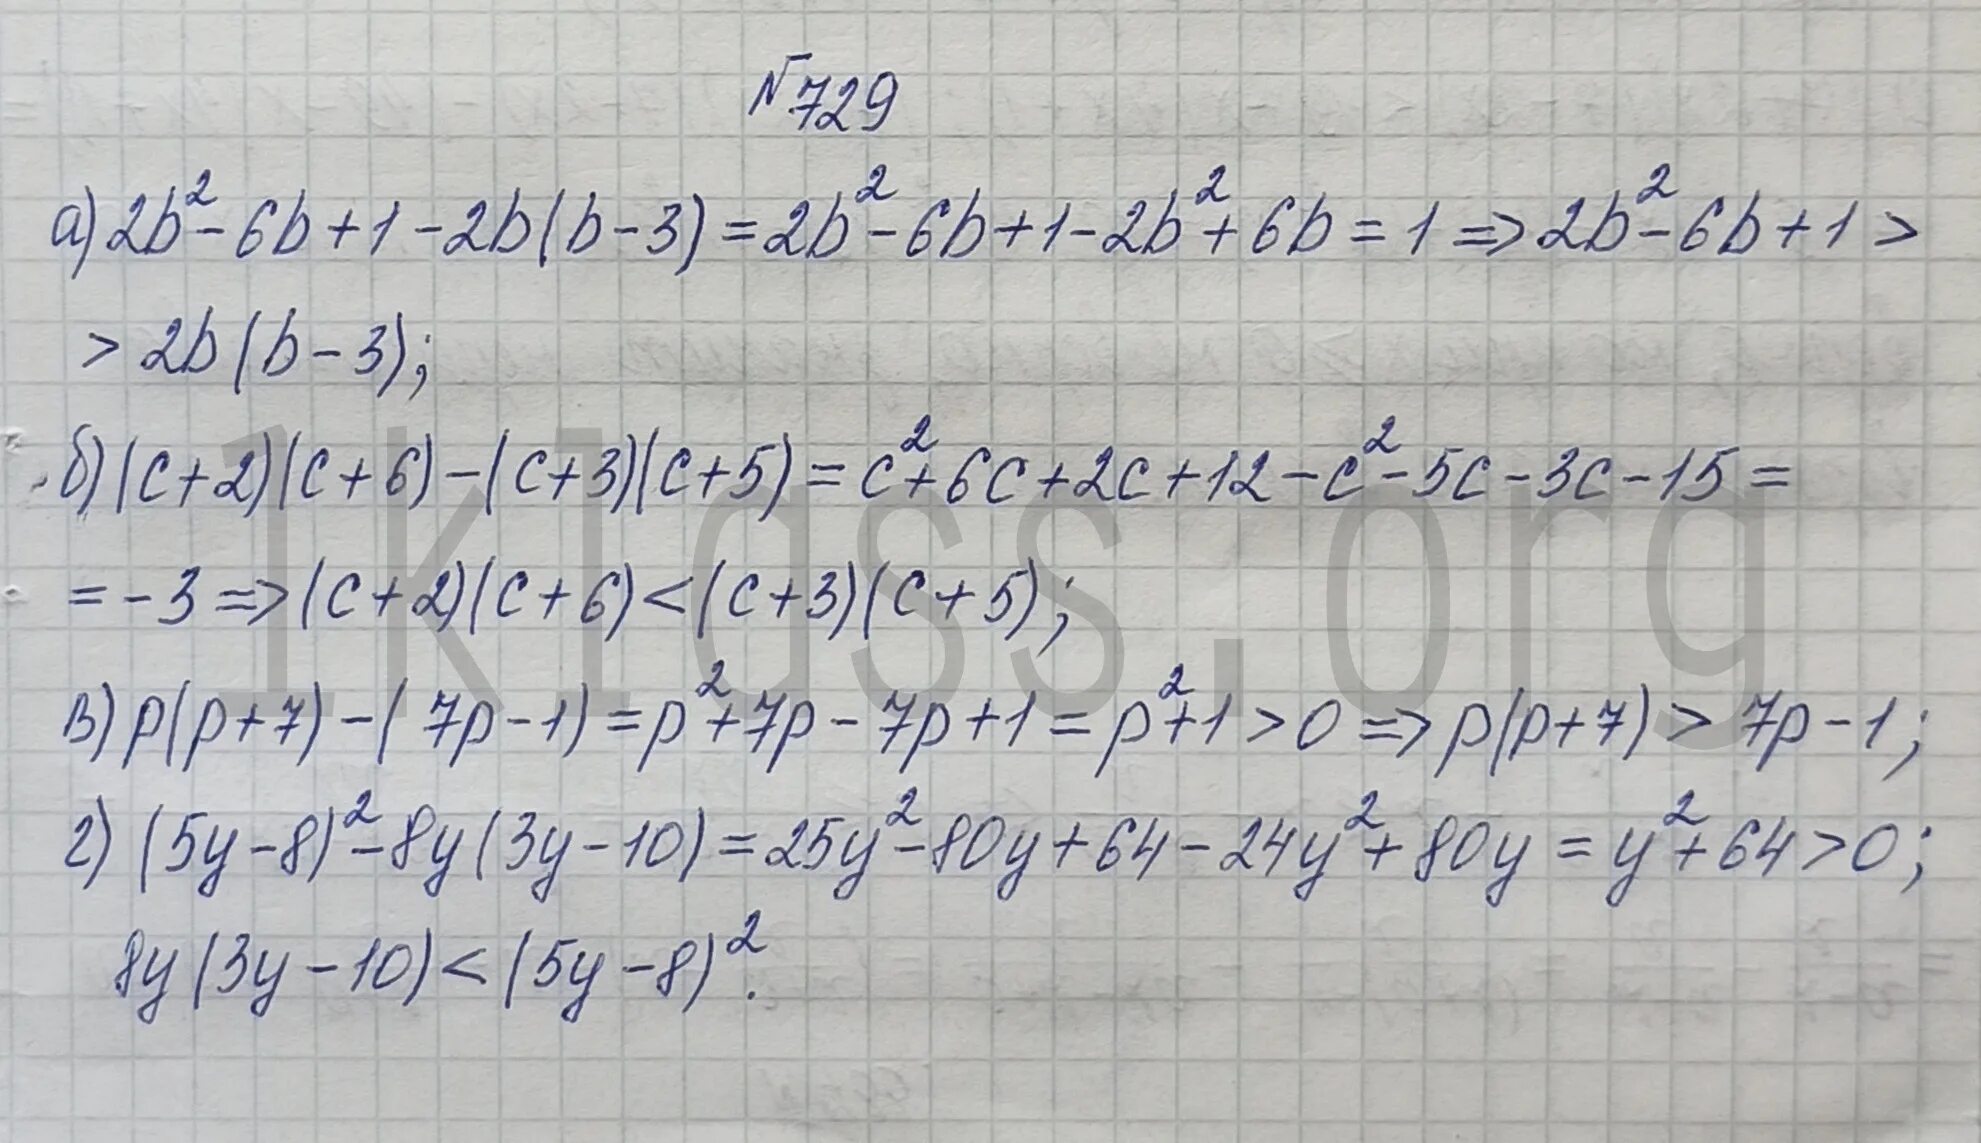 №729
а) 2b² - 6b + 1 - 2b(b - 3) = 2b² - 6b + 1 - 2b² + 6b = 1 => 2b² - 6b + 1 >
> 2b(b - 3);
б) (c + 2)(c + 6) - (c + 3)(c + 5) = c² + 6c + 2c + 12 - c² - 5c - 3c - 15 =
= -3 => (c + 2)(c + 6) < (c + 3)(c + 5);
в) p(p + 7) - (7p - 1) = p² + 7p - 7p + 1 = p² + 1 > 0 => p(p + 7) > 7p - 1;
г) (5y - 8)² - 8y(3y - 10) = 25y² - 80y + 64 - 24y² + 80y = y² + 64 > 0;
8y(3y - 10) < (5y - 8)².
1klass.org